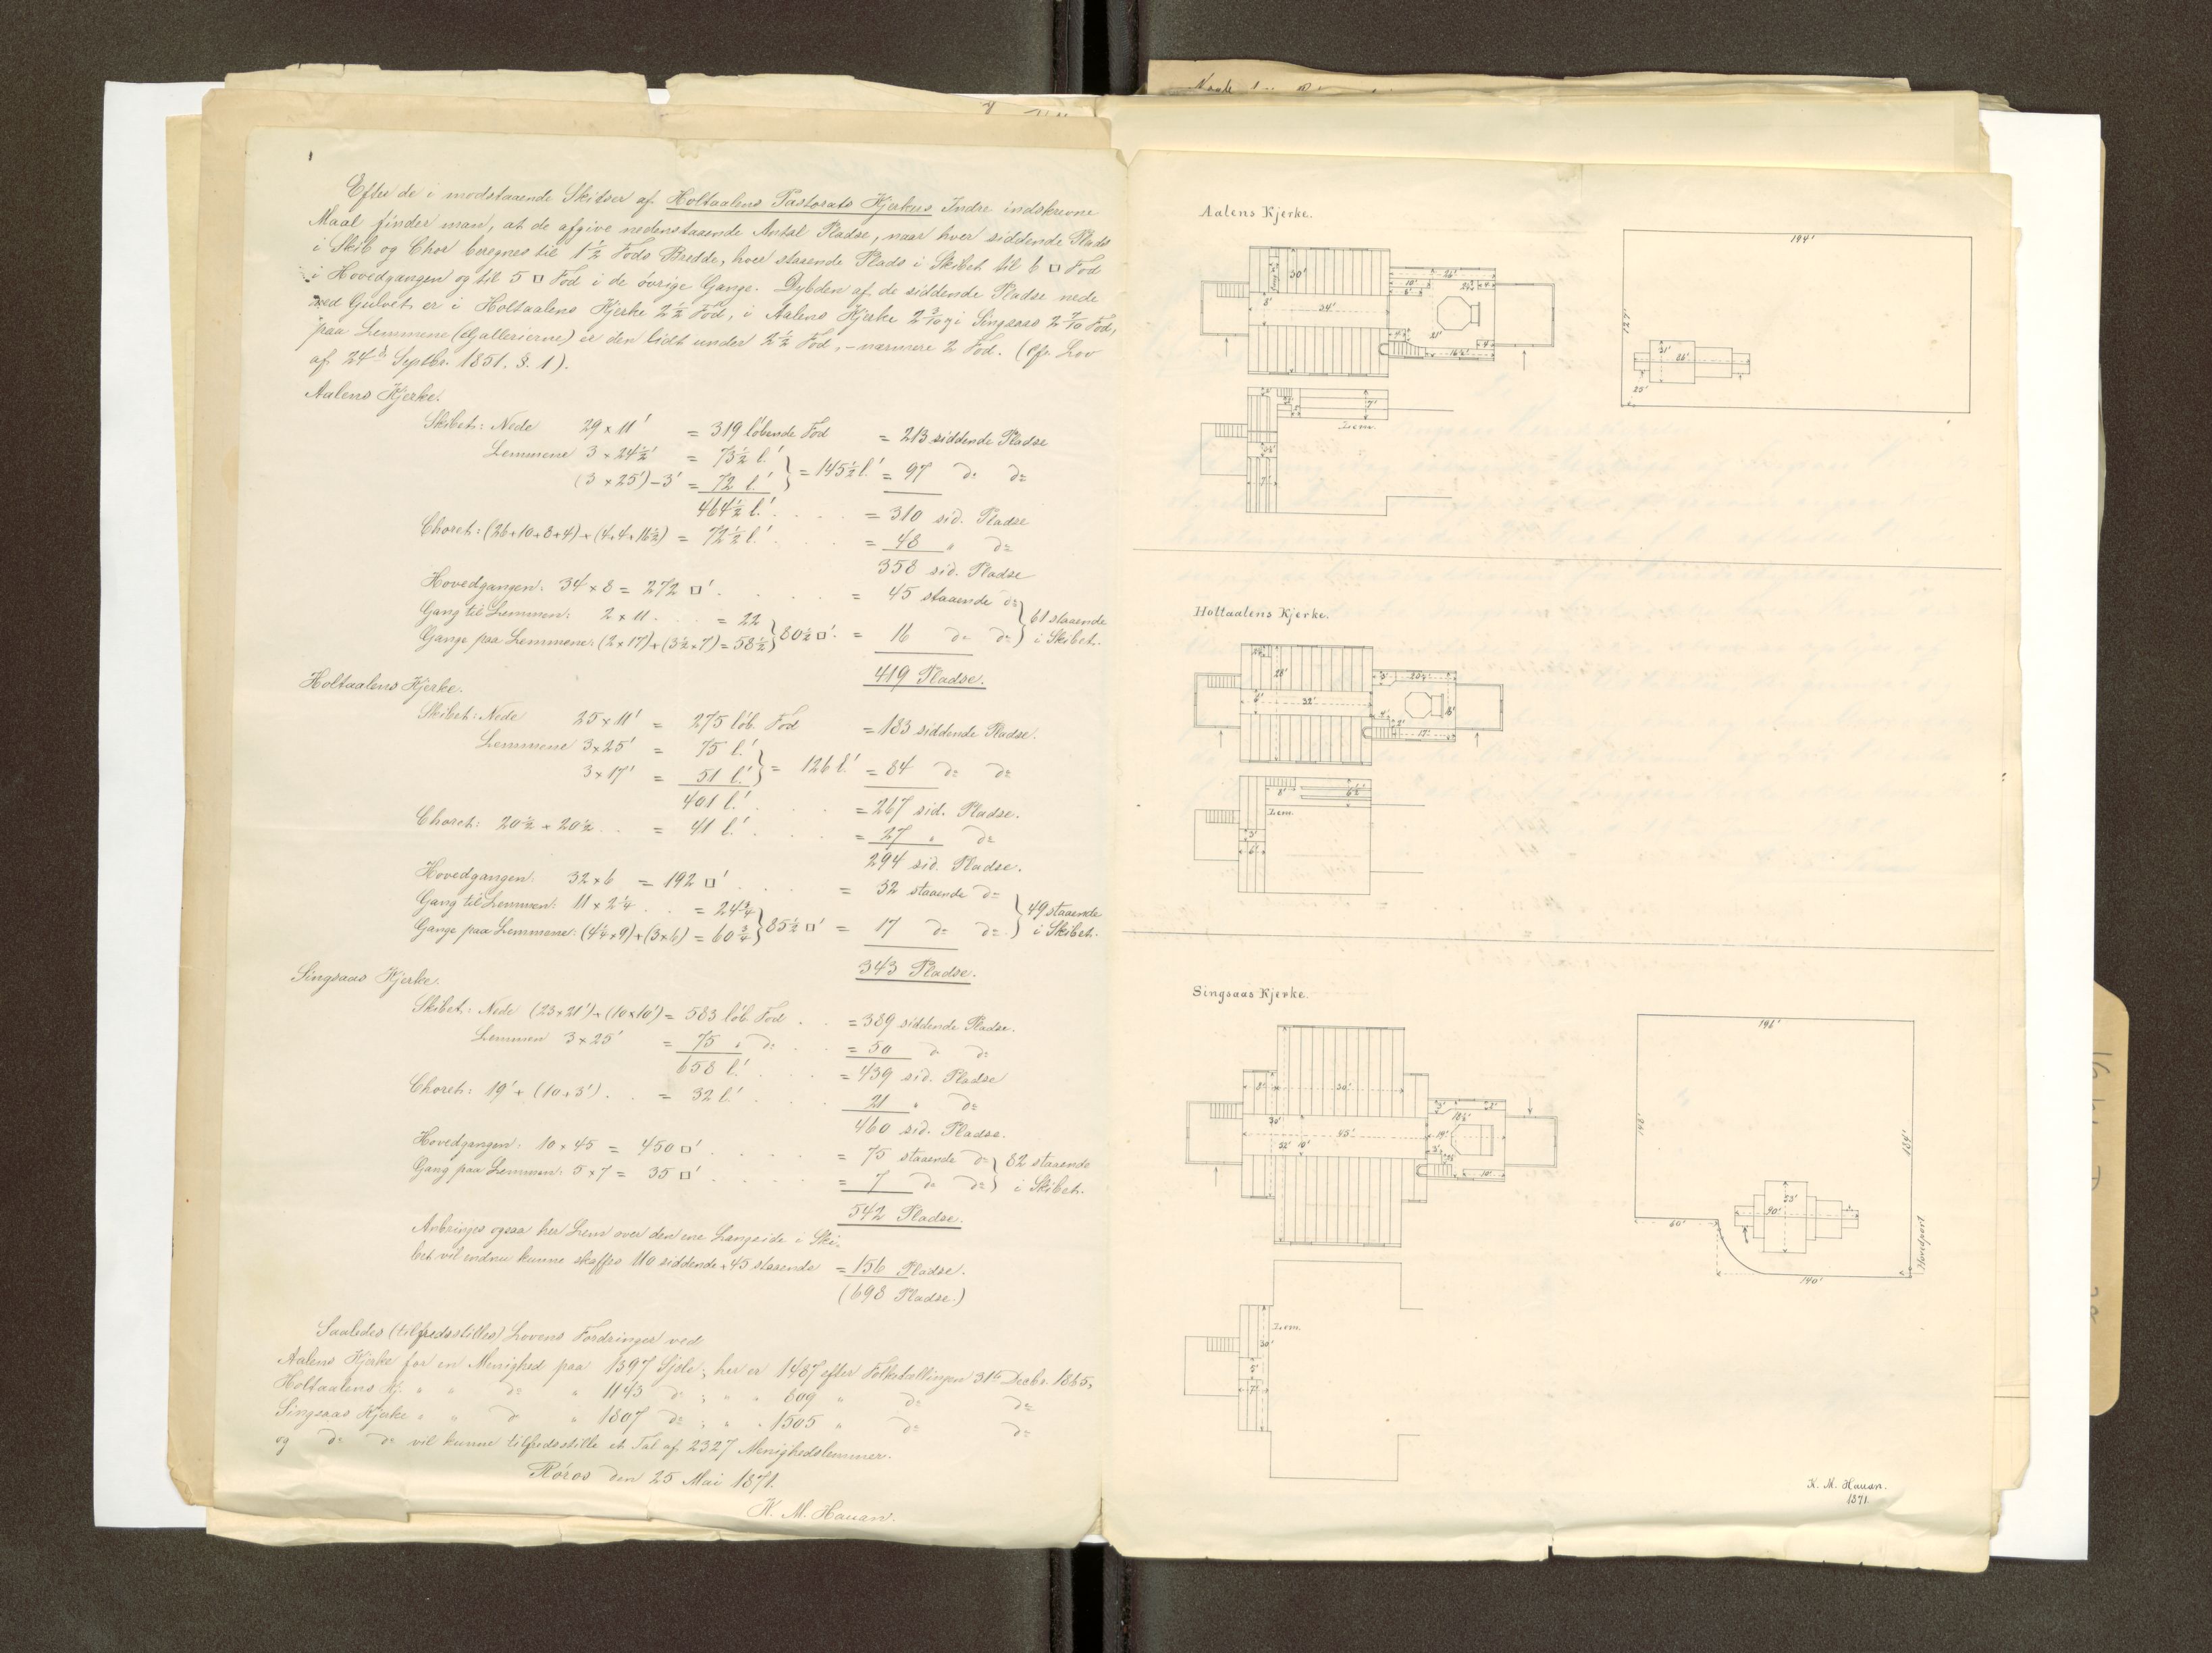 Efter de i modstaaende Skitser af Holtaalens Pastorats Kjerkers Indre indskrevne
Maal finder man, at de afgive nedenstaaende Antal Pladse, naar hver siddende Plads
i Skib og Chor beregnes til 1½ Fods Bredde, hver staaende Plads i Skibet til 6 □ Fod
i Hovedgangen og til 5 □ Fod i de övrige Gange. Dybden af de siddende Pladse nede
ved Gulvet er i Holtaalens Kjerke 2½ Fod, i Aalens Kjerke 2 3/10 og i Singsaas 2 7/10 Fod,
paa Lemmene (Gallerierne) er den lidt under 2½ Fod, – nærmere 2 Fod. (Cfr. Lov
af 24de Septbr. 1851. §. 1).
Aalens Kjerke.
Skibet: Nede 29 × 11' = 319 löbende Fod = 213 siddende Pladse
Lemmene 3 × 24½' = 73½ l.'
(3 × 25') – 3' = 72 l.' } = 145½ l.' = 97 do do
464½ l.' . . . = 310 sid. Pladse
Choret: (26+10+8+4) + (4+4+16½) = 72½ l.' . . . = 48 " do
358 sid. Pladse
Hovedgangen: 34 × 8 = 272 □' . . . = 45 staaende do
Gang til Lemmen: 2 × 11 . . . = 22
Gange paa Lemmene: (2×17) + (3½×7) = 58½ } 80½ □'. = 16 do do } 61 staaende i Skibet.
419 Pladse.
Holtaalens Kjerke.
Skibet: Nede 25 × 11' = 275 löb. Fod = 183 siddende Pladse.
Lemmene 3×25' = 75 l.'
3×17' = 51 l.' } = 126 l.' = 84 do do
401 l.' . . . = 267 sid. Pladse.
Choret: 20½ + 20½ . . = 41 l.' . . . = 27 " do
294 sid. Pladse.
Hovedgangen: 32×6 = 192 □' . . . = 32 staaende do
Gang til Lemmen: 11 × 2¼ . . = 24¾
Gange paa Lemmene: (4¾×9) + (3×6) = 60¾ } 85½ □' = 17 do do } 49 staaende i Skibet.
343 Pladse.
Singsaas Kjerke.
Skibet: Nede (23×21') + (10×10') = 583 löb. Fod . . = 389 siddende Pladse.
Lemmen 3×25' = 75 " do . . = 50 do do
658 l.' . . . = 439 sid. Pladse
Choret: 19' + (10+3') . . = 32 l.' . . . 21 " do
460 sid. Pladse.
Hovedgangen: 10 × 45 = 450 □' . . . = 75 staaende do
Gang paa Lemmen: 5 × 7 = 35 □' . . . = 7 do do } 82 staaende i Skibet.
542 Pladse.
Anbringes ogsaa her Lem over den ene Langside i Ski-
bet vil endnu kunne skaffes 110 siddende + 45 staaende = 156 Pladse.
(698 Pladse.)
Saaledes (tilfredsstilles) Lovens Fordringer ved
Aalens Kjerke for en Menighed paa 1397 Sjele; her er 1487 efter Folketællingen 31te Decbr. 1865,
Holtaalens Kj. " " do " 1143 do ; " " 809 " do do
Singsaas Kjerke " " do " 1807 do ; " " 1505 " do do
og do do vil kunne tilfredsstille et Tal af 2327 Menighedslemmer.
Röros den 25 Mai 1871.
K. M. Hauan.
Aalens Kjerke.
30'
8'
34'
26'
10'
6'
4'
21'
16½'
4'
7'
Lem.
7'
194'
127'
31'
86'
25'
Holtaalens Kjerke.
28'
6'
32'
3'
4'
17'
8'
6½'
Lem.
3'
6'
Singsaas Kjerke.
8'
30'
30'
45'
52'
10'
3'
18½'
19'
3'
10'
Lem.
30'
5'
7'
196'
148'
184'
53'
90'
60'
140'
Hovedport
K. M. Hauan.
1871.